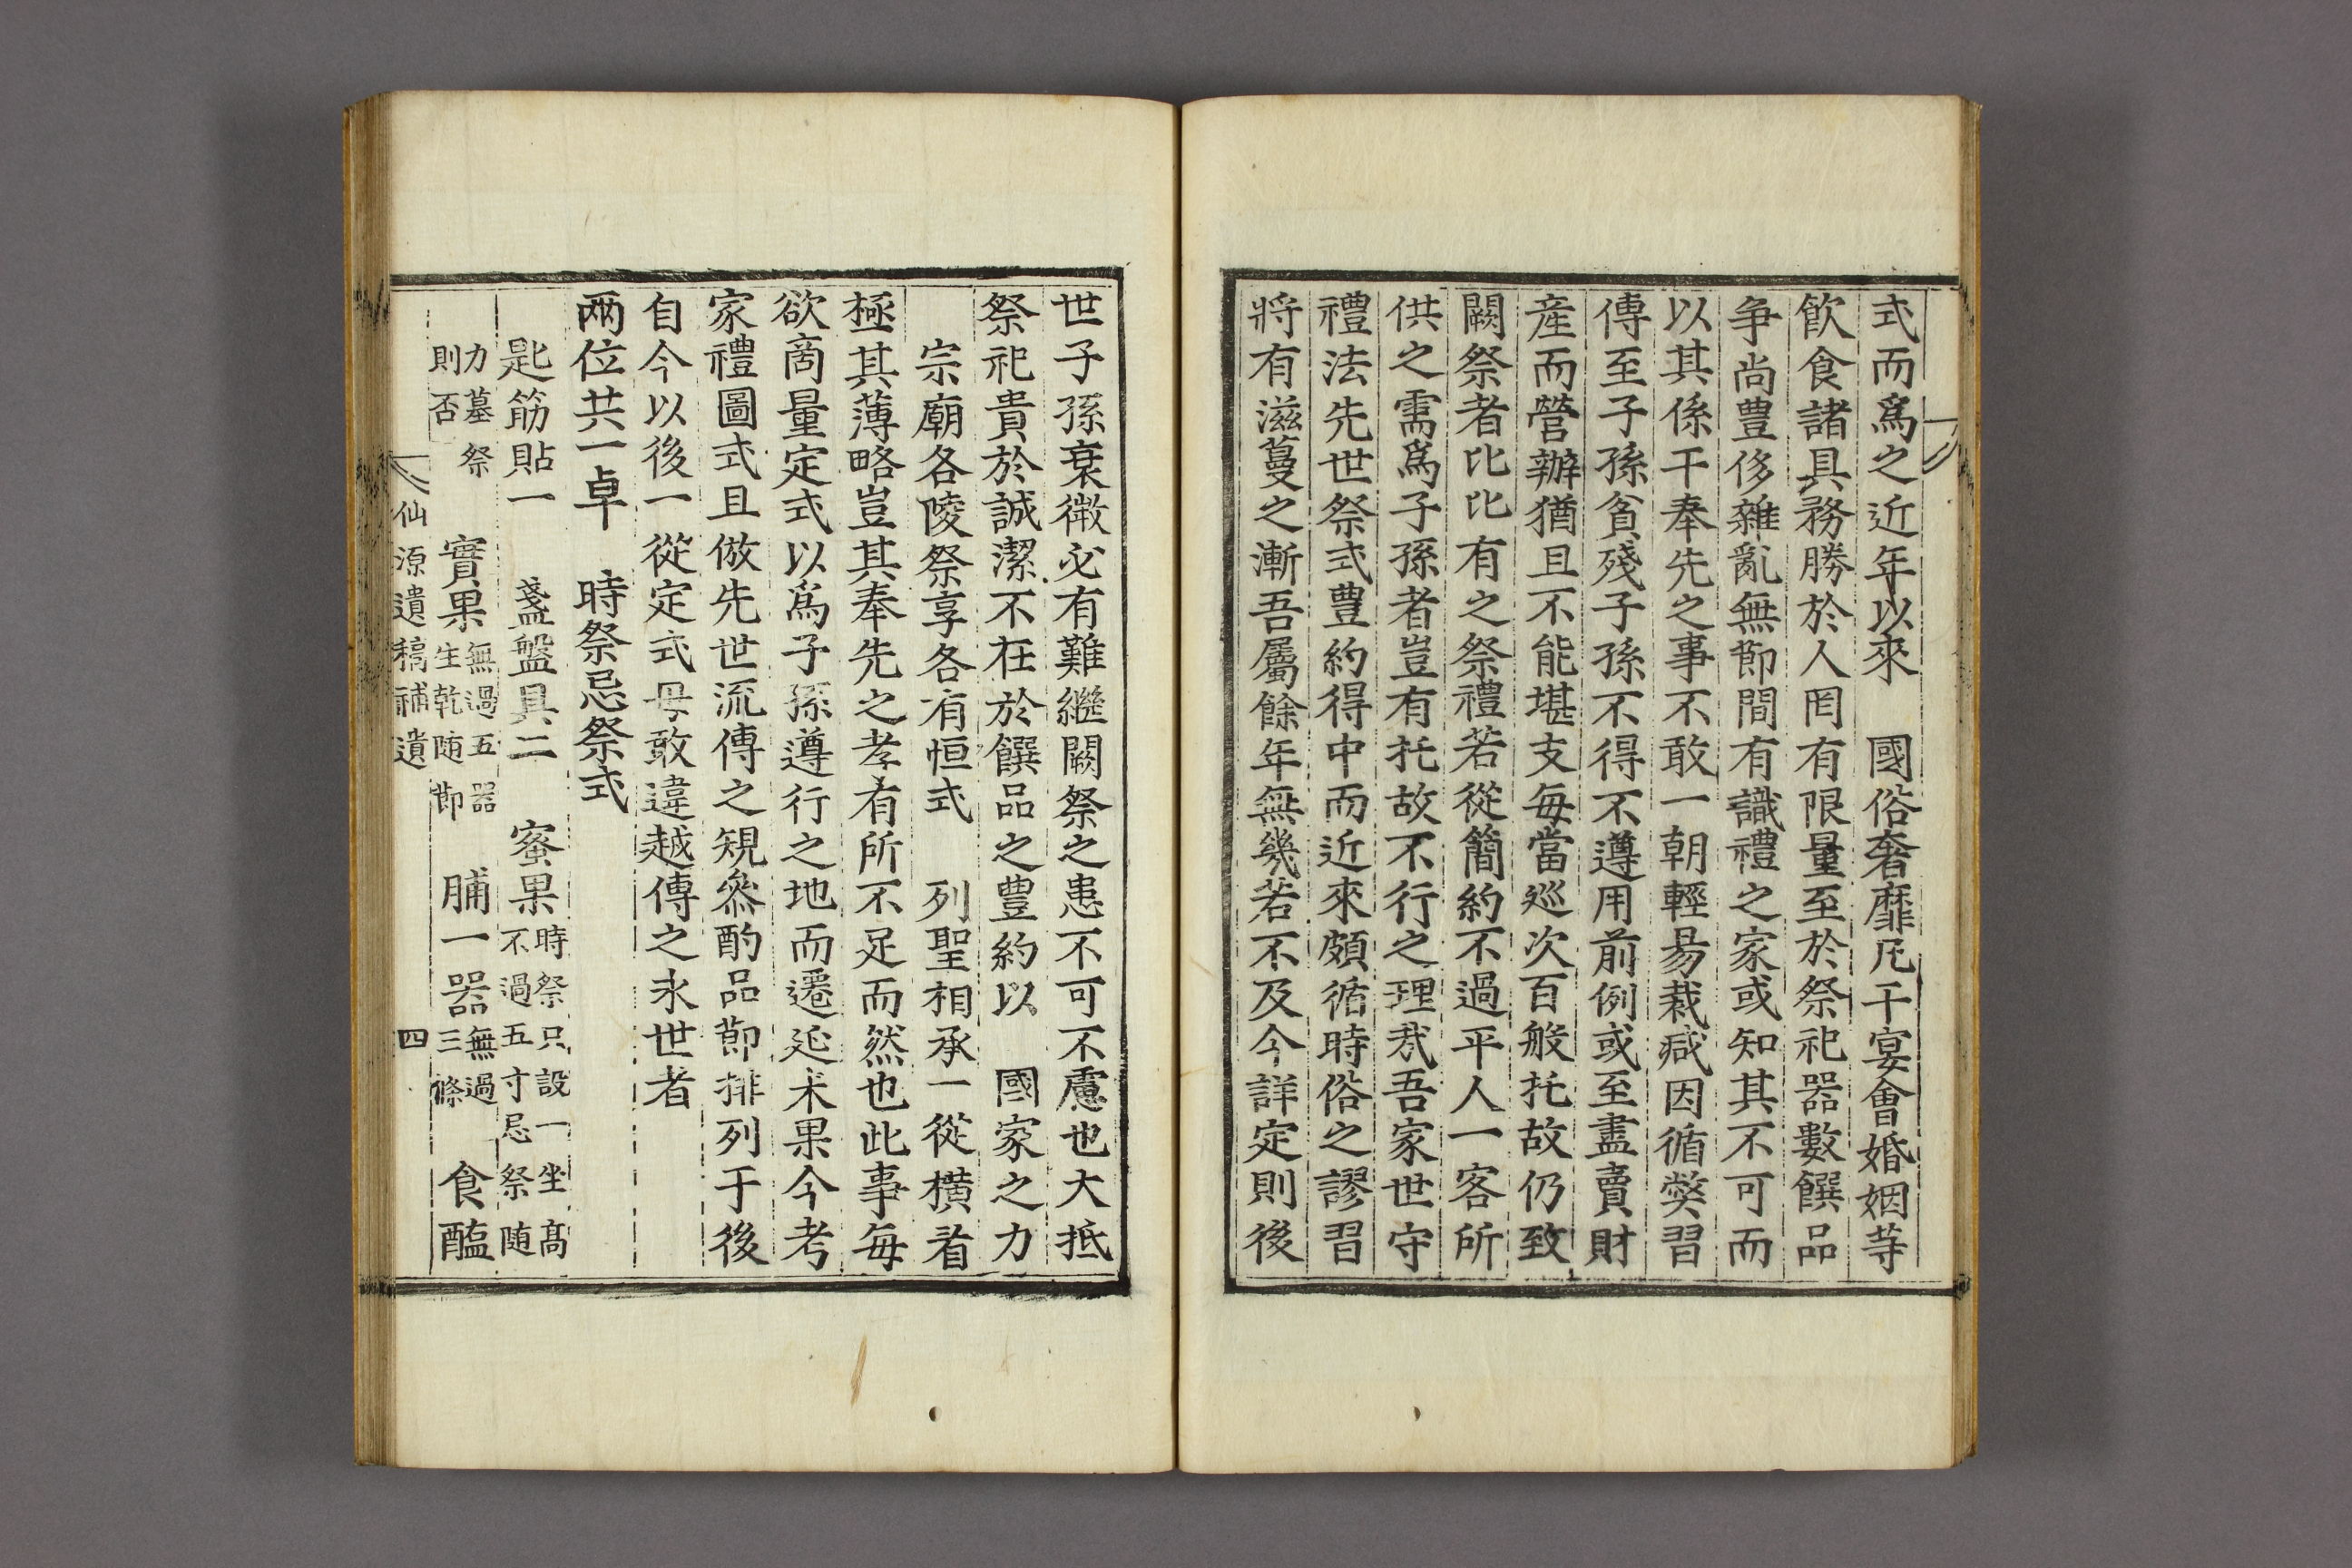 式而爲之近年以來 國俗奢靡凡干宴會婚姻等
飮食諸具務勝於人罔有限量至於祭祀器數饌品
爭尙豊侈雜亂無節間有識禮之家或知其不可而
以其係干奉先之事不敢一朝輕易裁减因循獘習
傳至子孫貧殘子孫不得不遵用前例或至盡賣財
産而營辦猶且不能堪支每當巡次百般托故仍致
闕祭者比比有之祭禮若從簡約不過平人一客所
供之需爲子孫者豈有托故不行之理㦲吾家世守
禮法先世祭式豊約得中而近來頗循時俗之謬習
將有滋蔓之漸吾屬餘年無幾若不及今詳定則後
世子孫衰微必有難繼闕祭之患不可不慮也大抵
祭祀貴於誠潔不在於饌品之豊約以 國家之力
宗廟各陵祭享各有恒式 列聖相承一從橫看
極其薄略豈其奉先之孝有所不足而然也此事每
欲商量定式以爲子孫遵行之地而遷延未果今考
家禮圖式且倣先世流傳之規叅酌品節排列于後
自今以後一從定式毋敢違越傳之永世者
兩位共一卓 時祭忌祭式
匙筯貼一 盞盤具二 蜜果時祭只設一坐高不過五寸忌祭隨
力墓祭則否 實果無過五器生乾随節 脯一器無過三條 食醢
仙源遺稿補遺 四